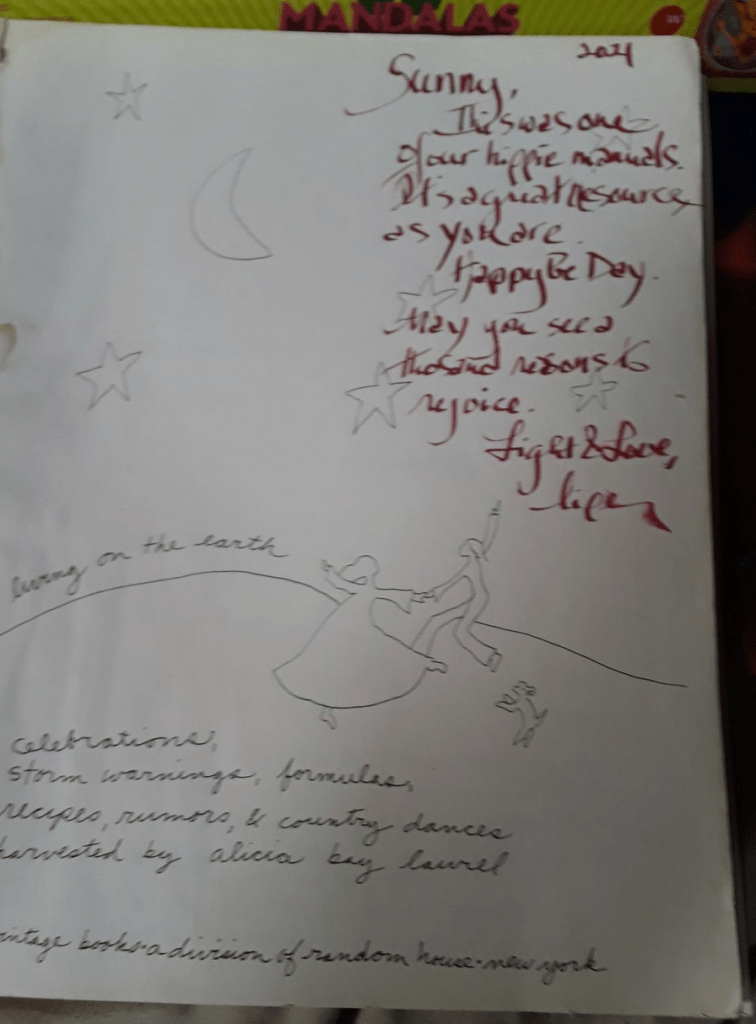 MANDALAS
2021
Sunny,
This was one
of our hippie manuals.
It's a great resource,
as you are.
Happy Be Day.
May you see a
thosand resons to
rejoice.
Light & Love,
living on the earth
celebrations,
storm warnings, formulas,
recipes, rumors, & country dances
harvested by alicia bay laurel
vintage books · a division of random house · new york